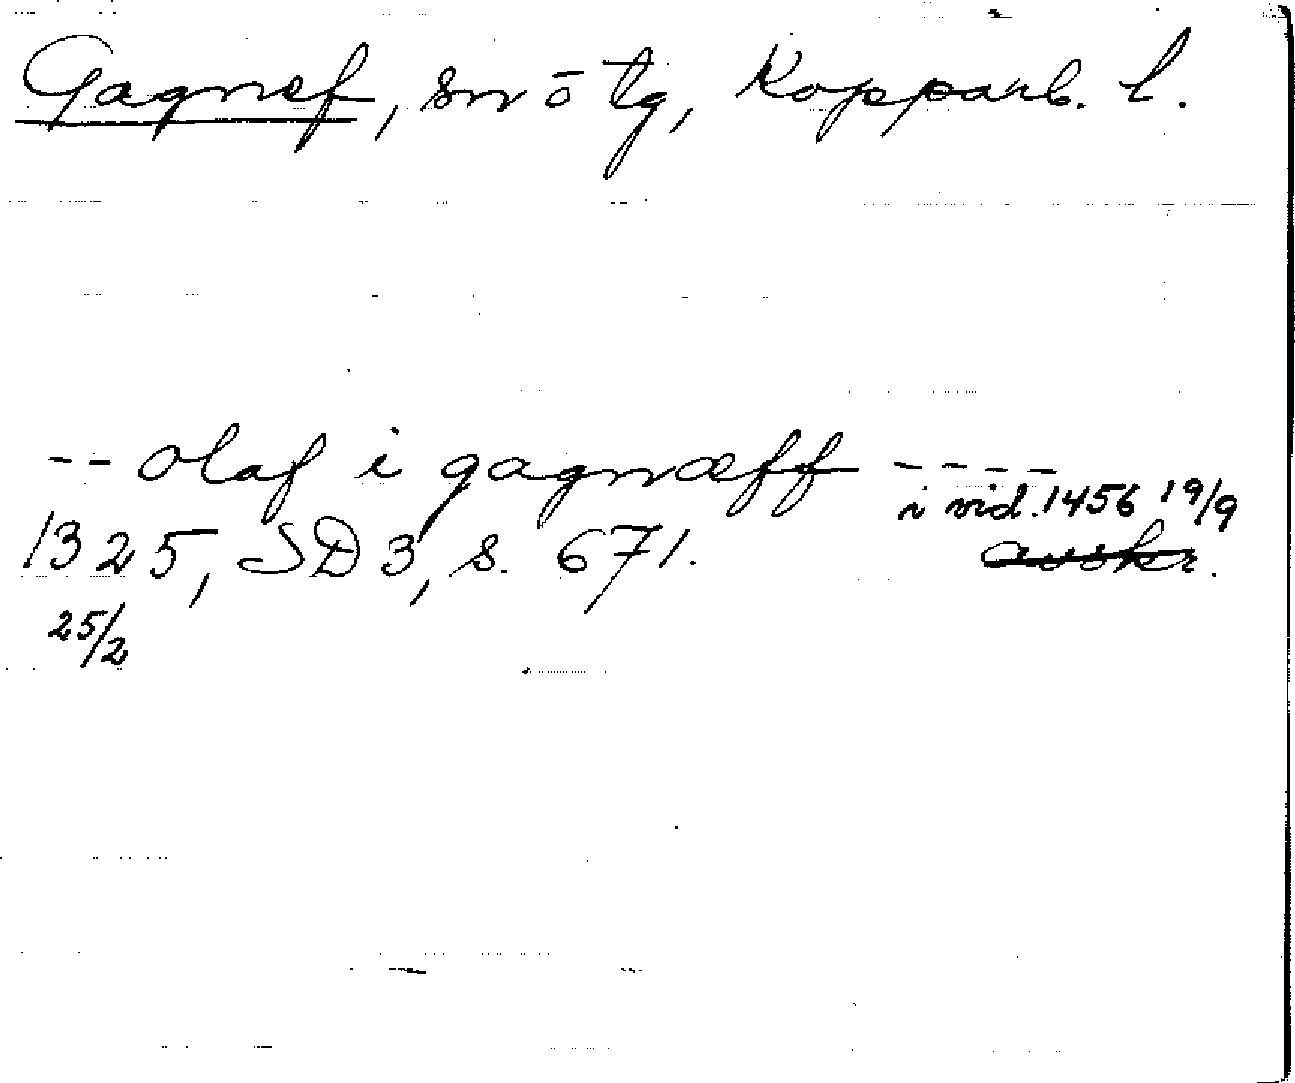 Gagnef, sn o tg, Kopparb. l.
-- olaf i gagnæff -----
i vid. 1456 19/9
1325, SD 3, s. 671.
avskr.
25/2